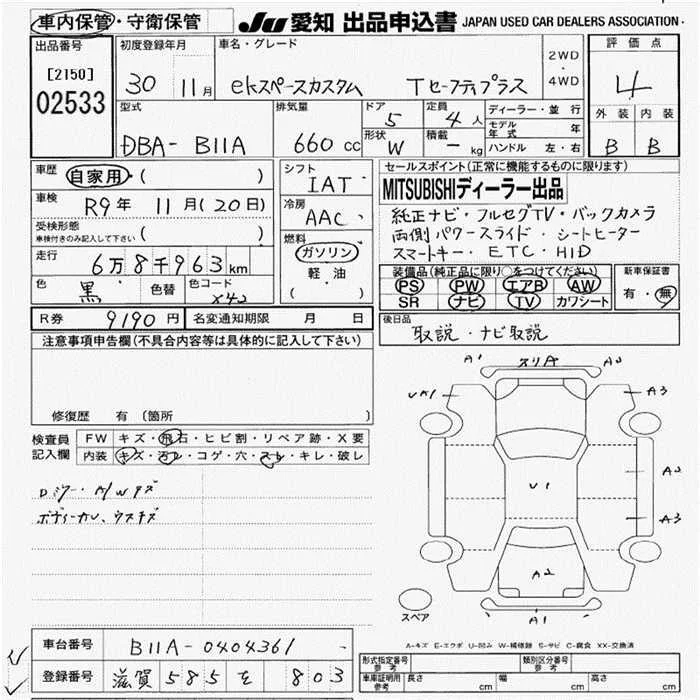 車内保管・守衛保管 JU 愛知 出品申込書 JAPAN USED CAR DEALERS ASSOCIATION
出品番号 初度登録年月 車名・グレード 2WD・4WD 評価点
[2150] 30 11月 ekスペースカスタム Tセーフティプラス 4
02533 型式 排気量 ドア 5 定員 4人 ディーラー・並行 外装 内装
DBA- B11A 660 cc 形状 W 積載 - kg モデル年式 年 B B
ハンドル 左・右
車歴 自家用・( ) シフト IAT セールスポイント(正常に機能するものに限ります)
車検 R9年 11月(20日) 冷房 AAC MITSUBISHIディーラー出品
受検形態 車検付きのみ記入して下さい ( ) 純正ナビ・フルセグTV・バックカメラ
燃料 ガソリン・軽油・( ) 両側パワースライド・シートヒーター
走行 6万8千963km スマートキー・ETC・HID
色 黒 色替 色コード X42 装備品(純正品に限り○をつけてください) 新車保証書
PS PW エアB AW 有・無
SR ナビ TV カワシート
R券 9190円 名変通知期限 月 日 後日品
取説・ナビ取説
注意事項申告欄(不具合内容等は具体的に記入して下さい)
修復歴 有〔箇所 〕
検査員記入欄 FW キズ・飛石・ヒビ割・リペア跡・X要
内装 キズ・汚レ・コゲ・穴・スレ・キレ・破レ
A1 スリA A2
UA1 A3
U1 A2
A3
A2
A1
スペア
A-キズ E-エクボ U-凹み W-補修跡 S-サビ C-腐食 XX-交換済
車台番号 B11A-0404361
登録番号 滋賀 585 を 803
形式指定番号 参考 類別区分番号 参考
車庫証明用 参考 長さ cm 幅 cm 高さ cm